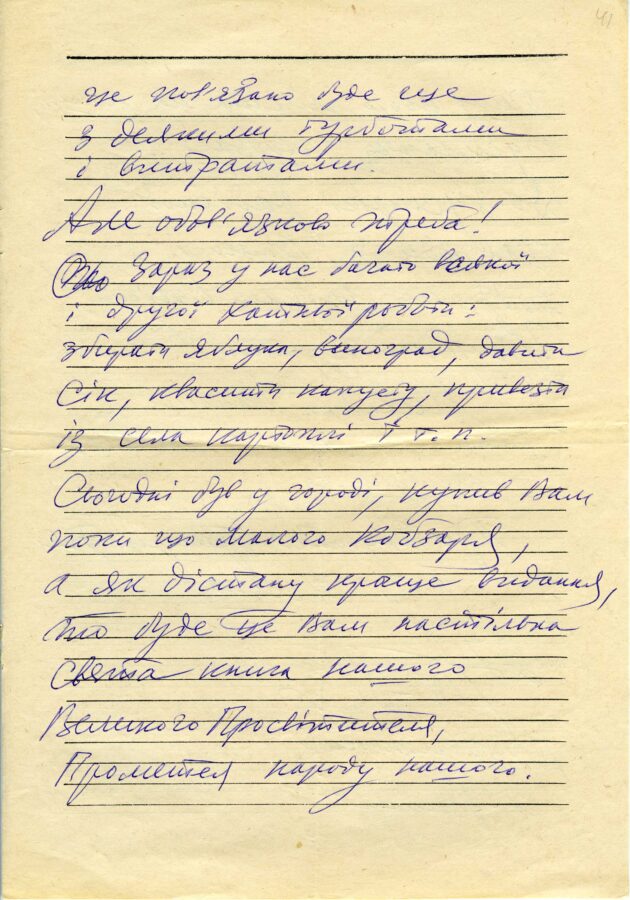 41
це пов'язано буде ще
з деякими турботами
і витратами.
Але обов'язково треба!
Зараз у нас багато всякої
і другої хатньої роботи:
збирати яблука, виноград, давити
сік, квасити капусту, привезти
із села картоплі і т. п.
Сьогодні був у городі, купив Вам
поки що малого Кобзаря,
а як дістану краще видання,
то буде це Вам настільна
свята книга нашого
Великого Просвітителя,
Прометея народу нашого.